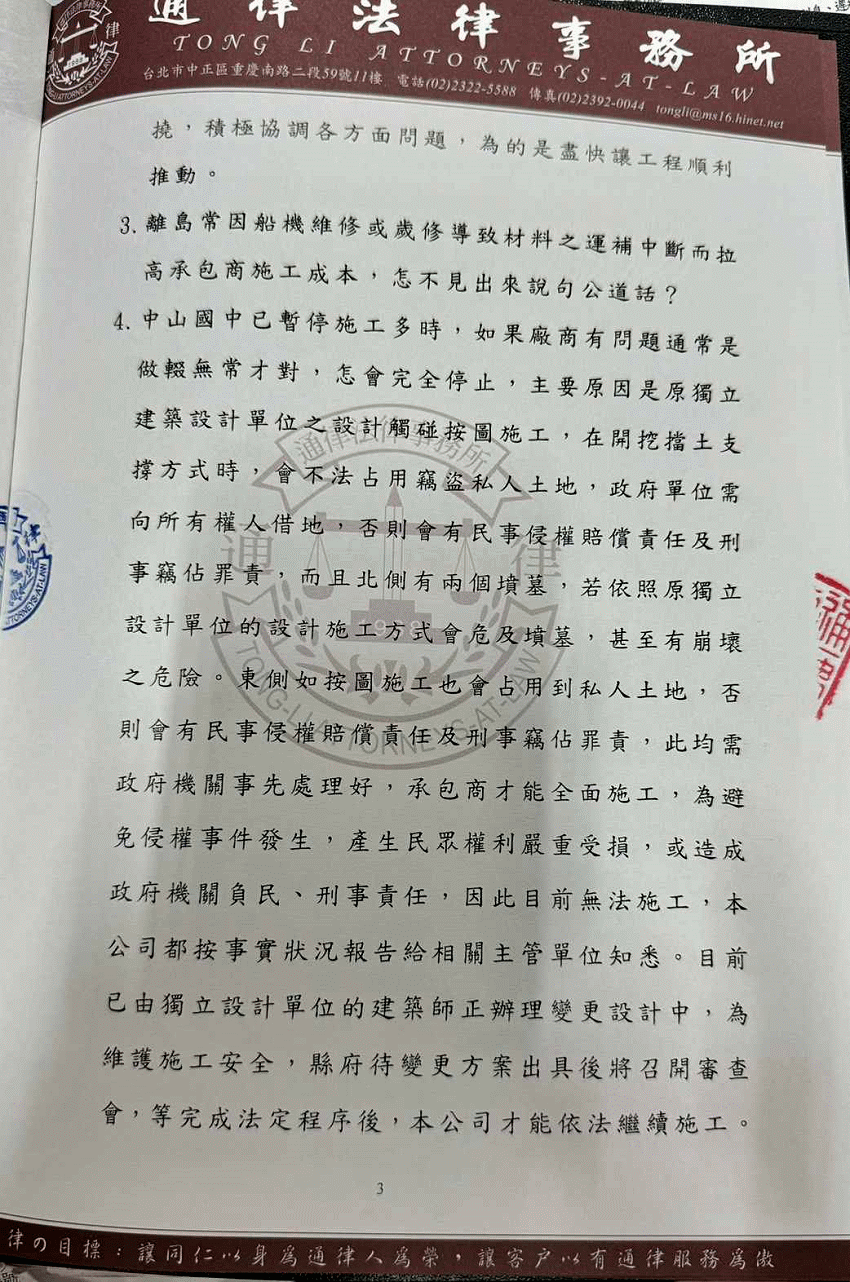 通律法律事務所
TONG LI ATTORNEYS-AT-LAW
台北市中正區重慶南路二段59號11樓 電話(02)2322-5588 傳真(02)2392-0044 tongli@ms16.hinet.net
撓，積極協調各方面問題，為的是盡快讓工程順利
推動。
3.離島常因船機維修或歲修導致材料之運補中斷而拉
高承包商施工成本，怎不見出來說句公道話？
4.中山國中已暫停施工多時，如果廠商有問題通常是
做輟無常才對，怎會完全停止，主要原因是原獨立
建築設計單位之設計觸碰按圖施工，在開挖擋土支
撐方式時，會不法占用竊盜私人土地，政府單位需
向所有權人借地，否則會有民事侵權賠償責任及刑
事竊佔罪責，而且北側有兩個墳墓，若依照原獨立
設計單位的設計施工方式會危及墳墓，甚至有崩壞
之危險。東側如按圖施工也會占用到私人土地，否
則會有民事侵權賠償責任及刑事竊佔罪責，此均需
政府機關事先處理好，承包商才能全面施工，為避
免侵權事件發生，產生民眾權利嚴重受損，或造成
政府機關負民、刑事責任，因此目前無法施工，本
公司都按事實狀況報告給相關主管單位知悉。目前
已由獨立設計單位的建築師正辦理變更設計中，為
維護施工安全，縣府待變更方案出具後將召開審查
會，等完成法定程序後，本公司才能依法繼續施工。
通律法律事務所
通 律
1958
TONG-LI ATTORNEYS-AT-LAW
3
律の目標：讓同仁以身為通律人為榮，讓客戶以有通律服務為傲